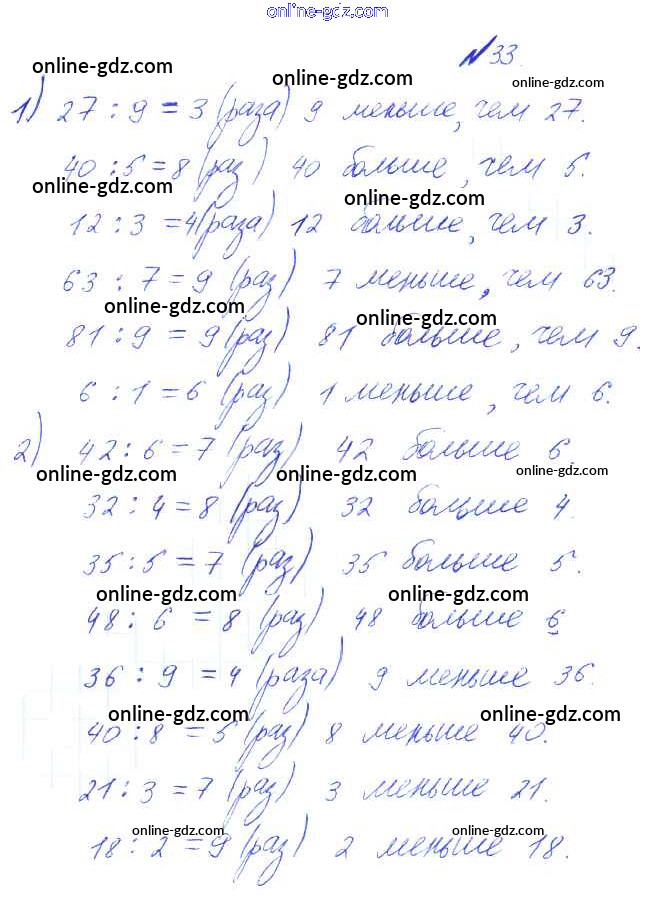 online-gdz.com
№33.
online-gdz.com
online-gdz.com
online-gdz.com
1) 27 : 9 = 3 (раза) 9 меньше, чем 27.
40 : 5 = 8 (раз) 40 больше, чем 5.
online-gdz.com
online-gdz.com
12 : 3 = 4 (раза) 12 больше, чем 3.
63 : 7 = 9 (раз) 7 меньше, чем 63.
online-gdz.com
online-gdz.com
81 : 9 = 9 (раз) 81 больше, чем 9.
6 : 1 = 6 (раз) 1 меньше, чем 6.
2) 42 : 6 = 7 (раз) 42 больше 6
online-gdz.com
online-gdz.com
online-gdz.com
32 : 4 = 8 (раз) 32 больше 4.
35 : 5 = 7 (раз) 35 больше 5.
online-gdz.com
online-gdz.com
48 : 6 = 8 (раз) 48 больше 6
36 : 9 = 4 (раза) 9 меньше 36.
online-gdz.com
online-gdz.com
40 : 8 = 5 (раз) 8 меньше 40.
21 : 3 = 7 (раз) 3 меньше 21.
online-gdz.com
online-gdz.com
18 : 2 = 9 (раз) 2 меньше 18.